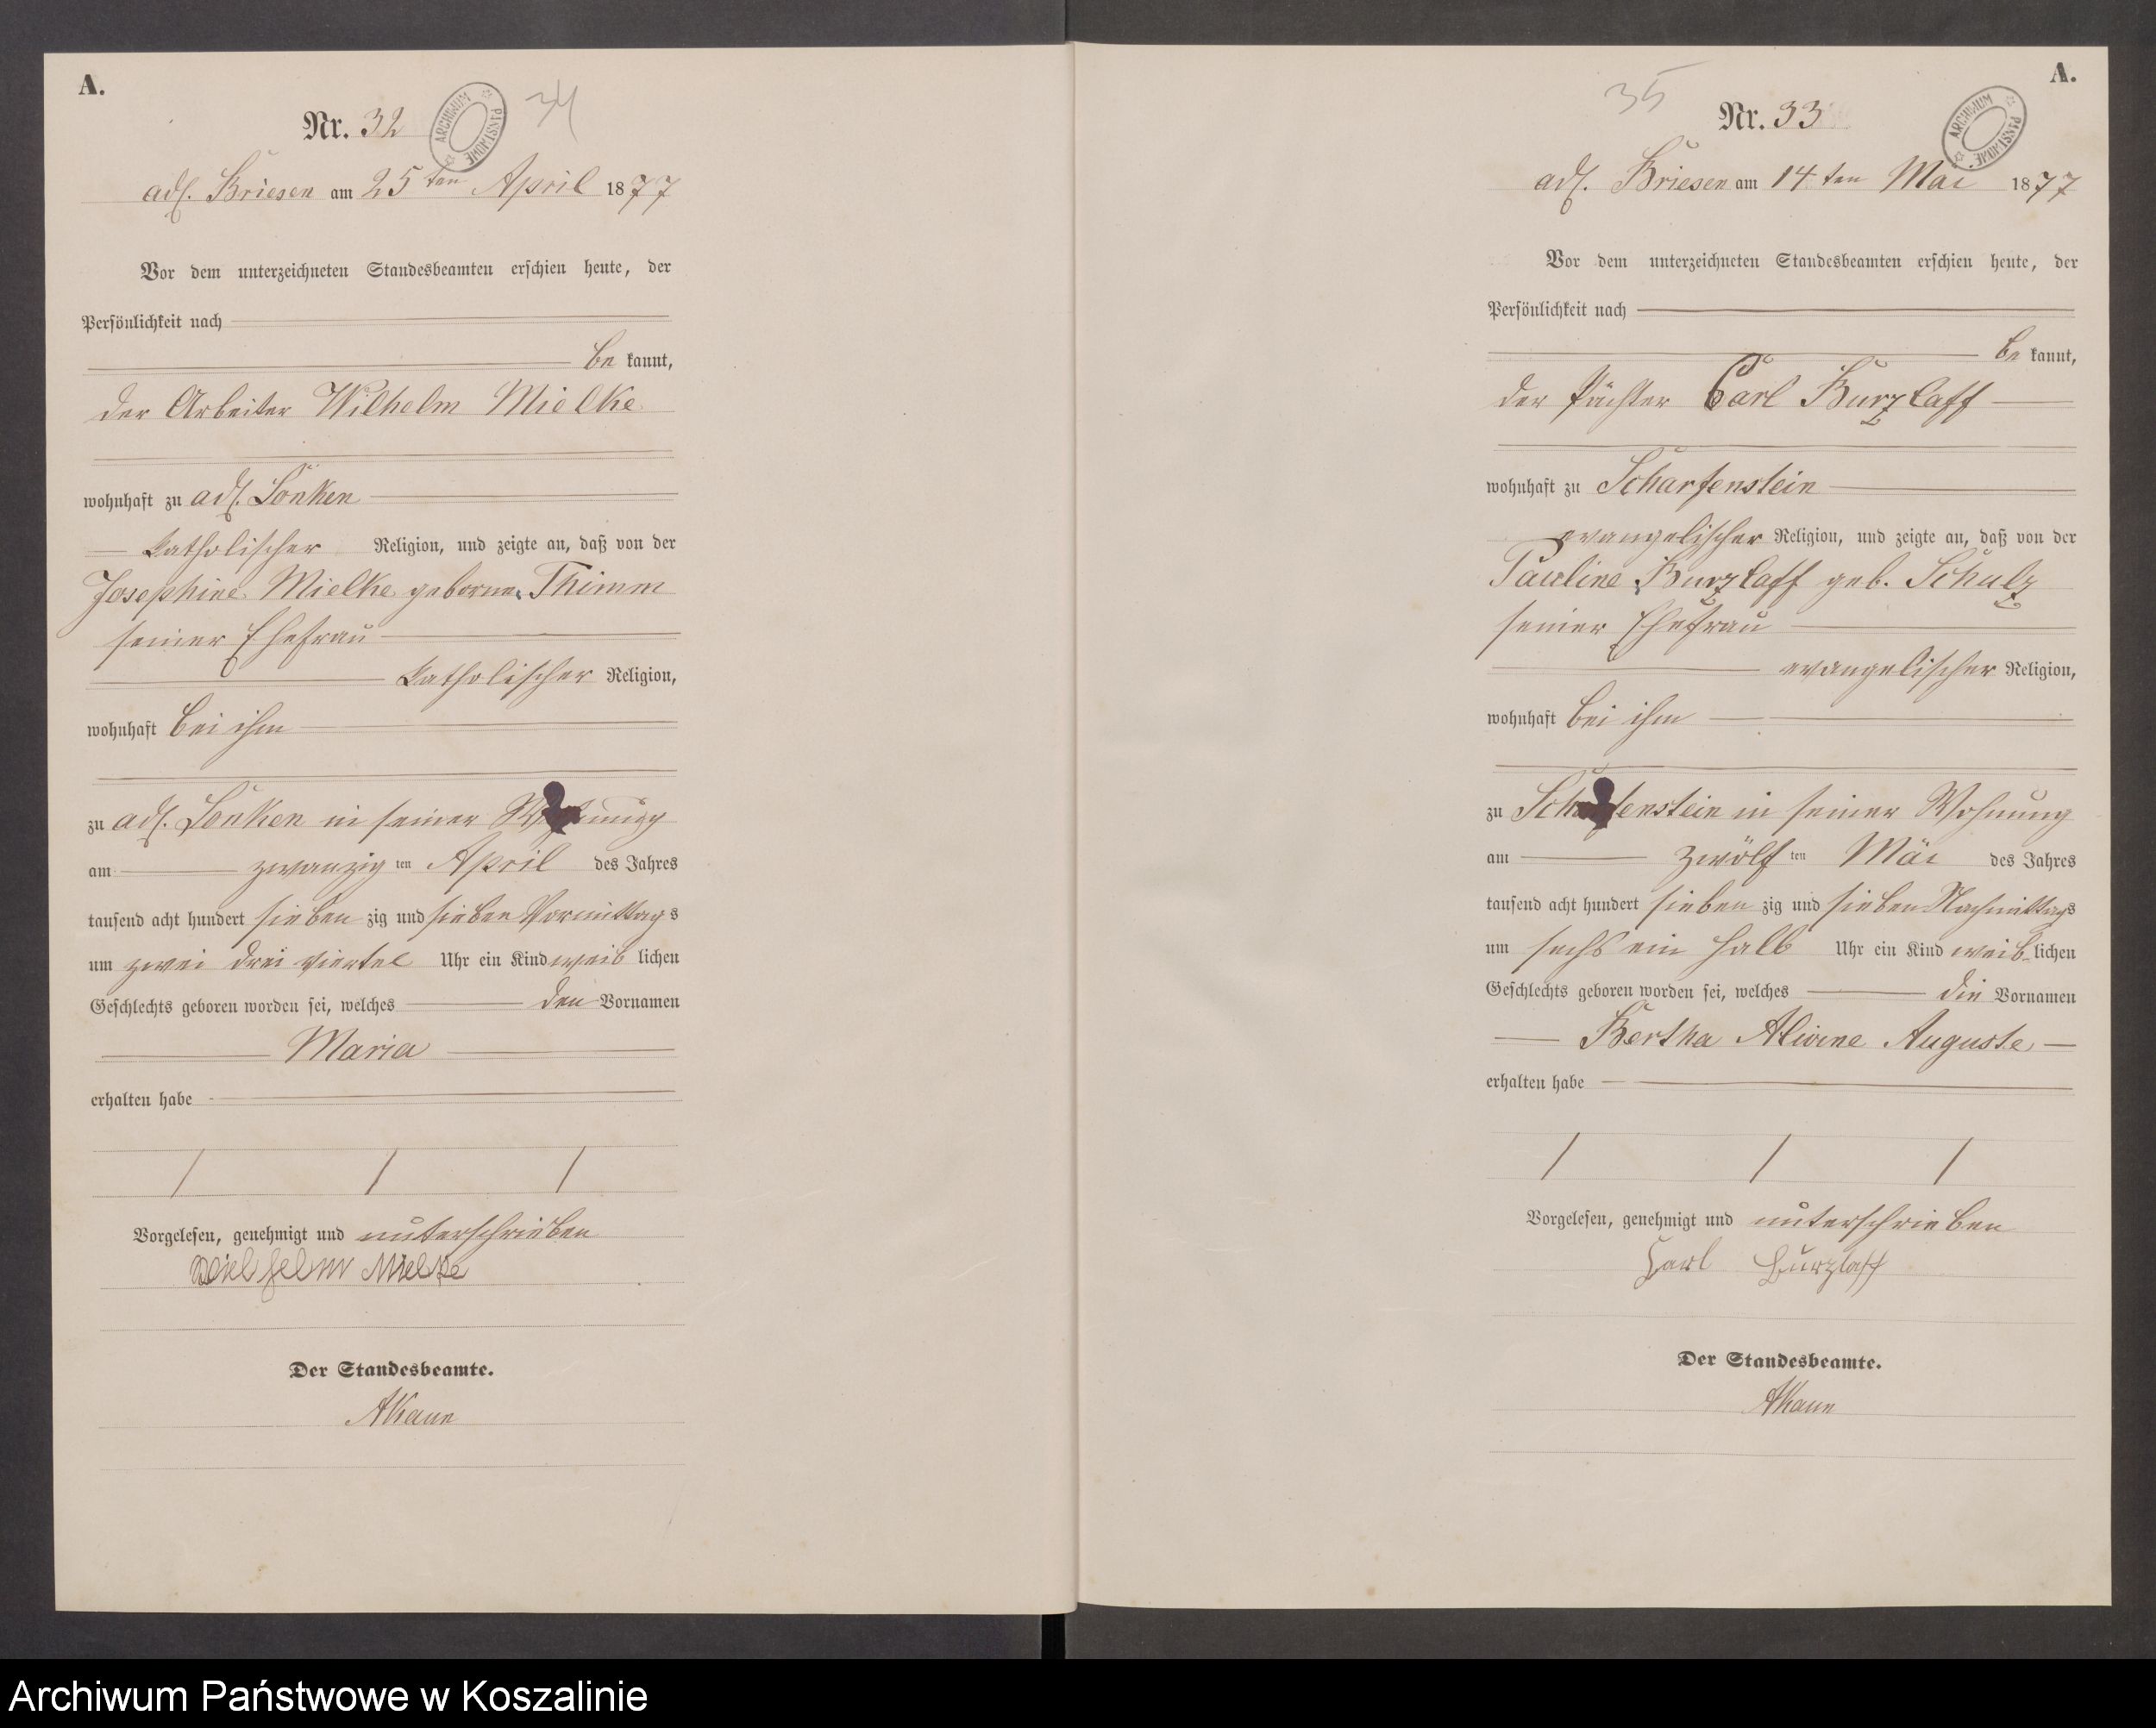 A.
Nr. 32
34
ARCHIWUM PAŃSTWOWE
adl. Briesen am 25ten April 1877
Vor dem unterzeichneten Standesbeamten erschien heute, der
Persönlichkeit nach
be kannt,
der Arbeiter Wilhelm Mielke
wohnhaft zu adl. Lonken
katholischer Religion, und zeigte an, daß von der
Josephine Mielke geborne Thimm
seiner Ehefrau
katholischer Religion,
wohnhaft bei ihm
zu adl. Lonken in seiner Wohnung
am zwanzig ten April des Jahres
tausend acht hundert sieben zig und sieben Vormittags
um zwei drei viertel Uhr ein Kind weib lichen
Geschlechts geboren worden sei, welches den Vornamen
Maria
erhalten habe
Vorgelesen, genehmigt und unterschrieben
Wielhelm Mielke
Der Standesbeamte.
A.
35
Nr. 33
ARCHIWUM PAŃSTWOWE
adl. Briesen am 14ten Mai 1877
Vor dem unterzeichneten Standesbeamten erschien heute, der
Persönlichkeit nach
be kannt,
der Pächter Carl Burzlaff
wohnhaft zu Scharfenstein
evangelischer Religion, und zeigte an, daß von der
Pauline Burzlaff geb. Schulz
seiner Ehefrau
evangelischer Religion,
wohnhaft bei ihm
zu Scharfenstein in seiner Wohnung
am zwölf ten Mai des Jahres
tausend acht hundert sieben zig und sieben Nachmittags
um sechs ein halb Uhr ein Kind weib lichen
Geschlechts geboren worden sei, welches die Vornamen
Bertha Alwine Auguste
erhalten habe
Vorgelesen, genehmigt und unterschrieben
Carl Burzlaff
Der Standesbeamte.
Archiwum Państwowe w Koszalinie